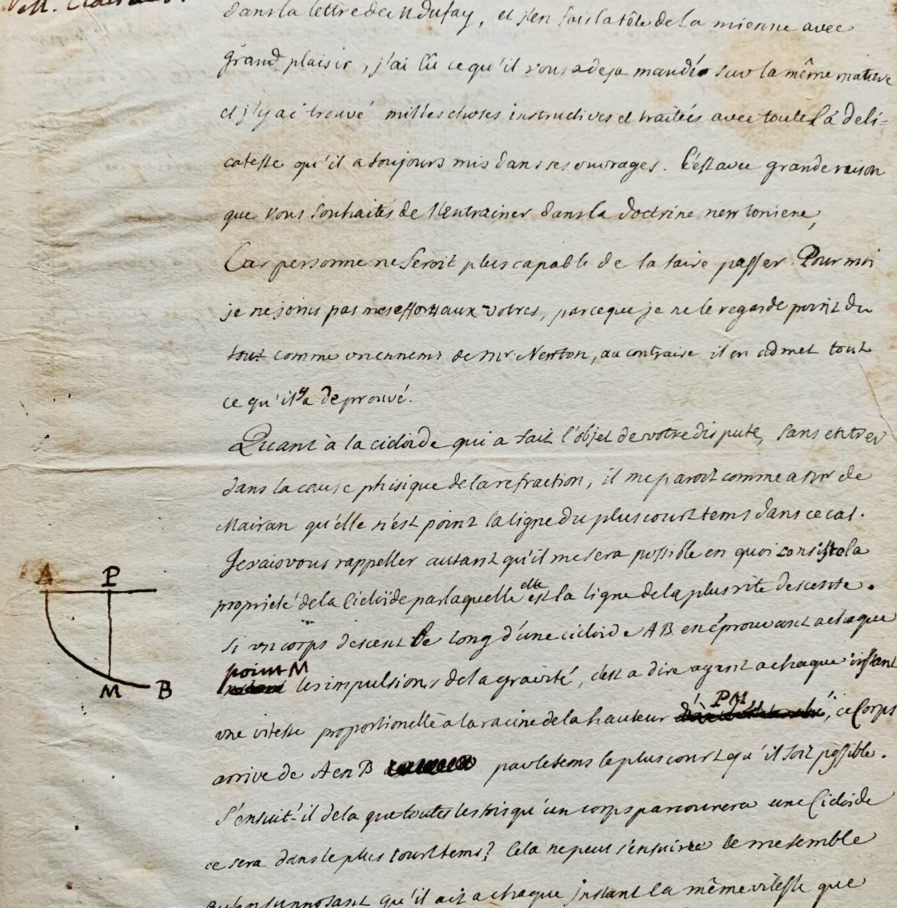 de M. Clairaut.
dans la lettre de M dufay, et j'en fais la tête de la mienne avec
grand plaisir, j'ai lû ce qu'il vous a deja mandé sur la même matiere
et j'y ai trouvé milles choses instructives et traitées avec toute la deli-
catesse qu'il a toujours mis dans ses ouvrages. C'est avec grande raison
que vous souhaités de l'entrainer dans la doctrine newtoniene,
Car personne ne seroit plus capable de la faire passer. Pour moi
je ne joins pas mes efforts aux votres, parceque je ne le regarde point du
tout comme un ennemi de Mr. Newton, au contraire il en admet tout
ce qu'il y a de prouvé.
Quant à la cicloide qui a fait l'objet de votre dispute, sans entrer
dans la cause phisique de la refraction, il me paroit comme a Mr de
Mairan qu'elle n'est point la ligne du plus court tems dans ce cas.
Je vais vous rappeller autant qu'il me sera possible en quoi consiste la
proprieté de la Cicloïde par laquelle elle est la ligne de la plus vite descente.
Si un corps descent le long d'une cicloide AB en éprouvant a chaque
point M les impulsions de la gravité, c'est a dire ayant a chaque instant
une vitesse proportionelle à la racine de la hauteur PM, ce Corps
arrive de A en B par le tems le plus court qu'il soit possible.
S'ensuit-il dela que toutes les fois qu'un corps parcourera une Cicloide
ce sera dans le plus court tems? Cela ne peut s'ensuivre ce me semble
qu'en supposant qu'il ait a chaque instant la même vitesse que
A P
M B